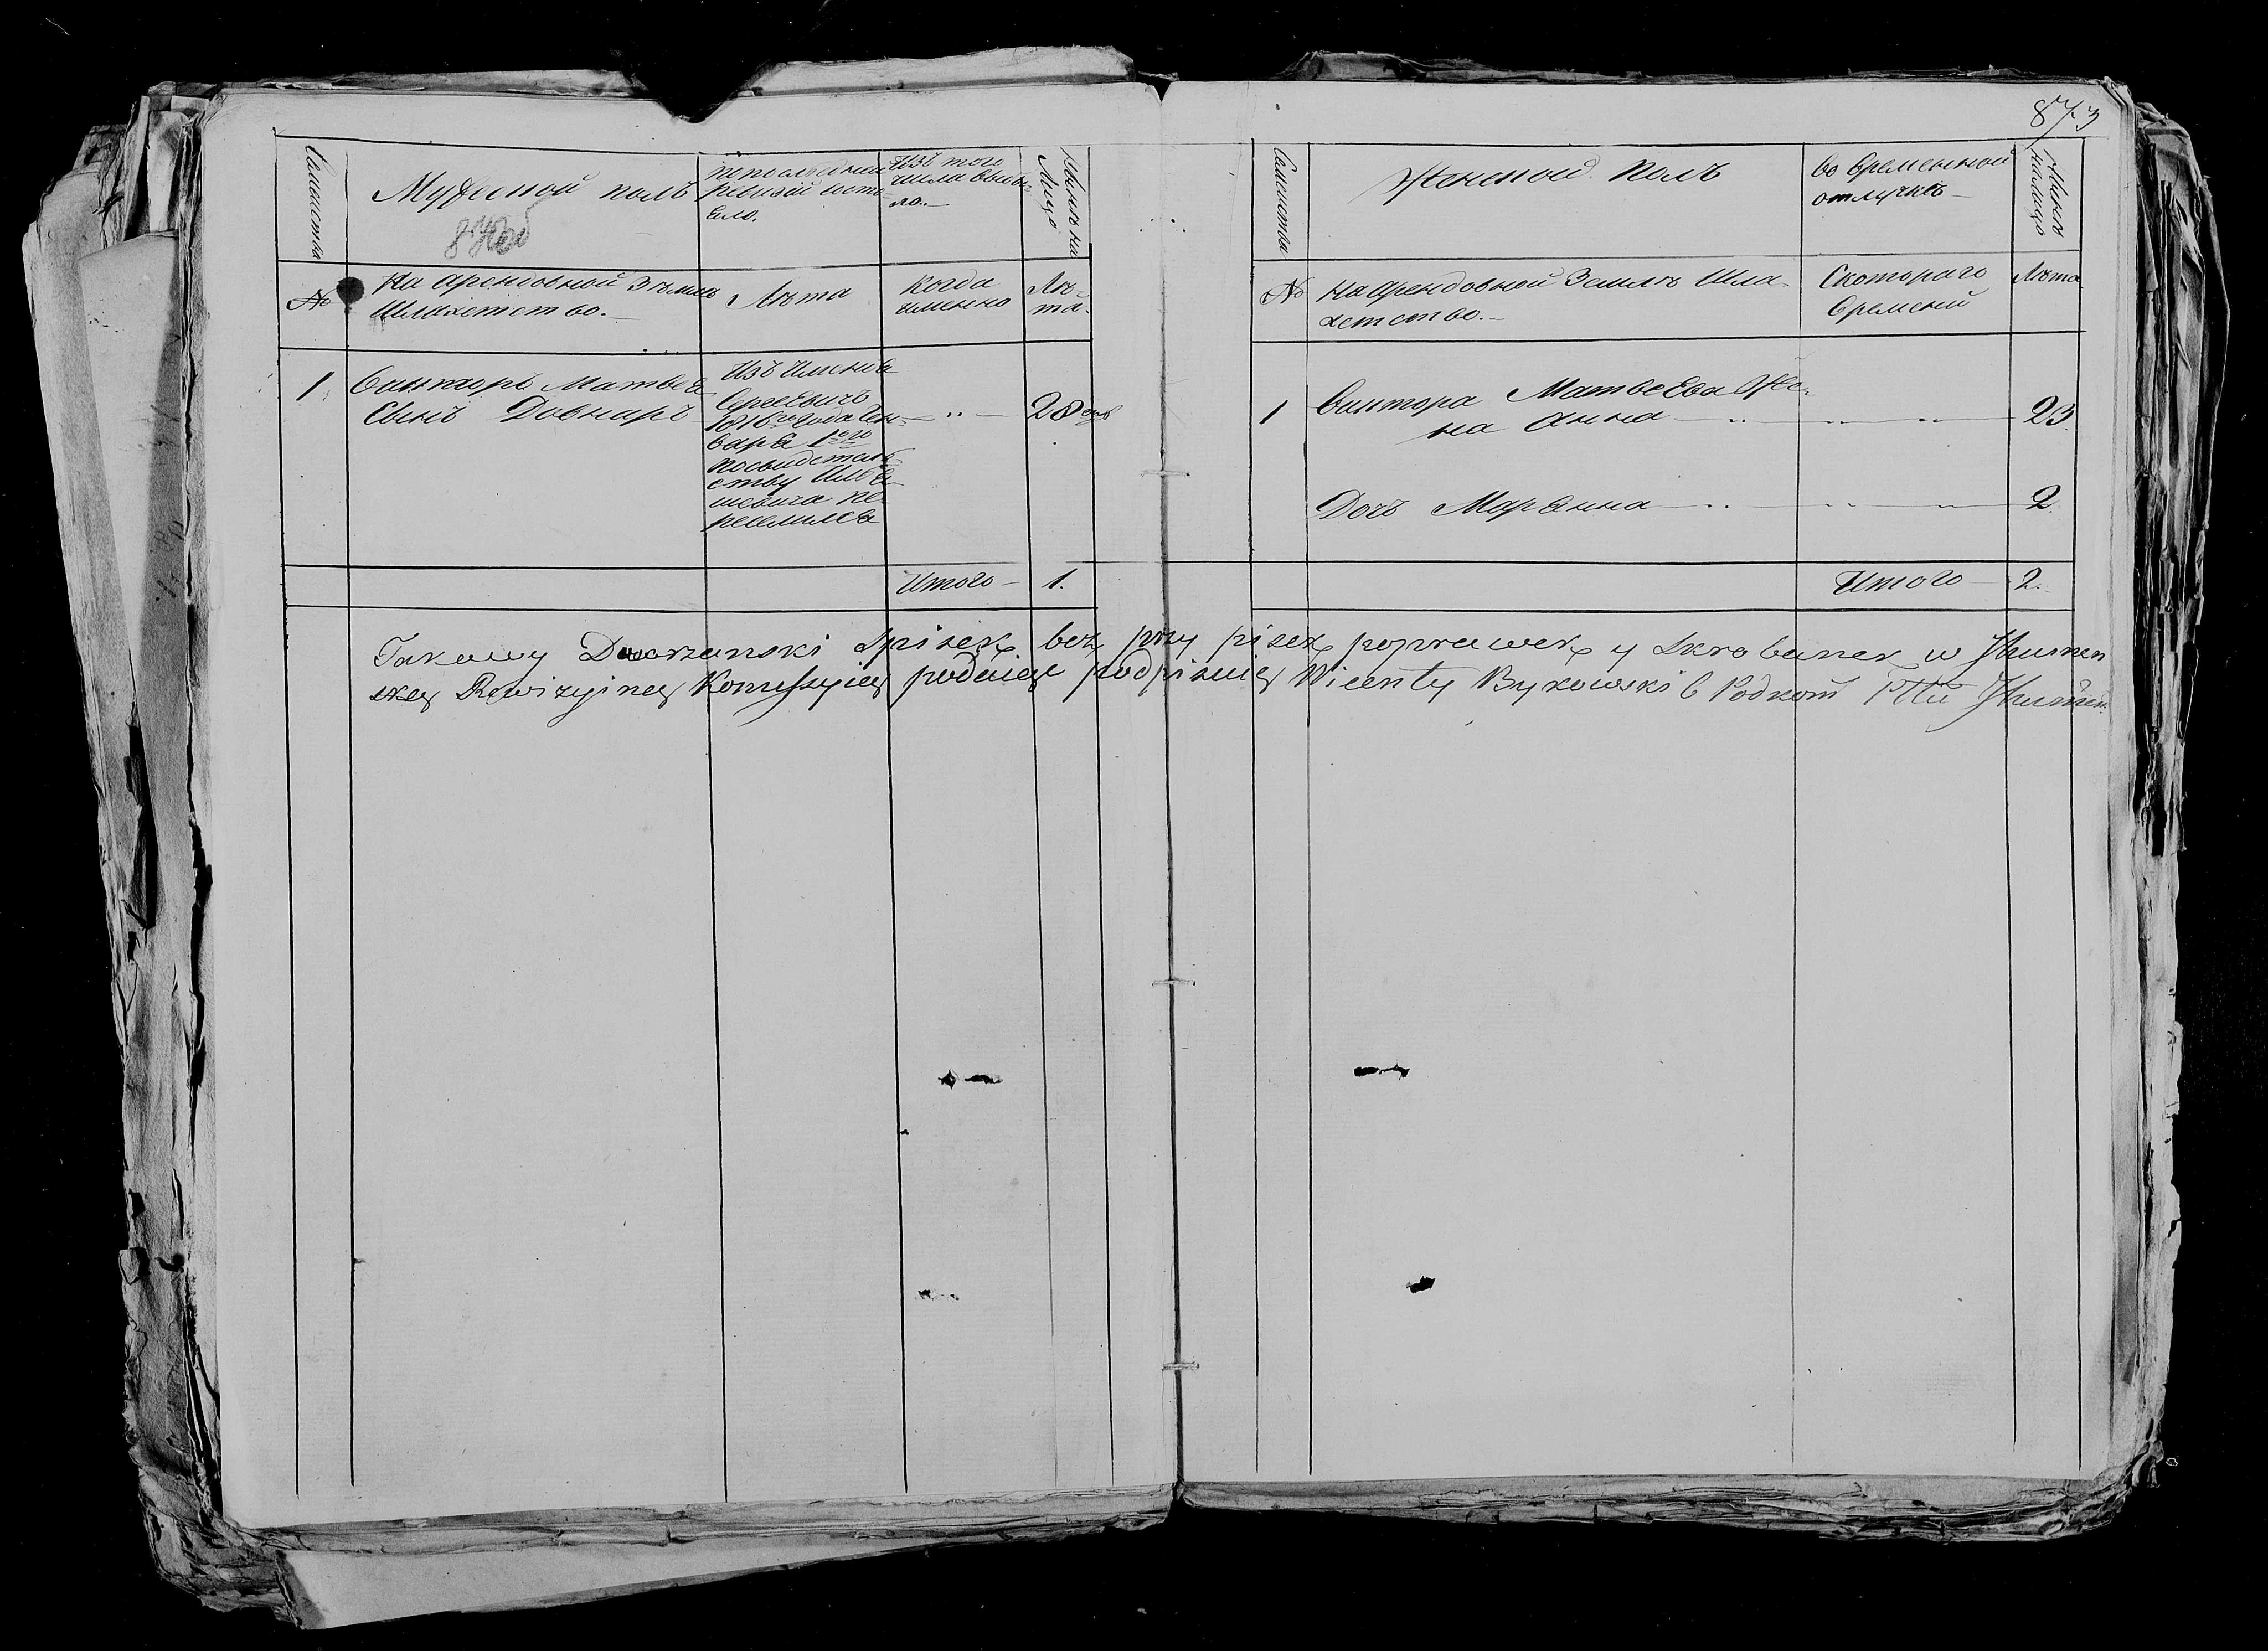 873
Семейства
Мужеской полъ
По последней
ревизіи состо-
яло.
Изъ того
числа выбы-
ло.
Нынѣ на
Лицо
№
На арендовной Землѣ
Шляхетство.
Лѣта
Когда
именно
Лѣ-
та.
1
Викторъ Матвея
Сынъ Довнаръ
Изъ Имѣнія
1816 Года Ян-
варя 1го
посвидетель-
ству
ресел ился
28
Итого 1.
Семейства
Женской Полъ
Во временной
отлучкѣ
Нынѣ
налицо
№
На арендовной Землѣ Шля-
хетство.
Скотораго
Времений
Лѣта
1
Виктора Матвеева Же-
на Анна 23.
Дочь Маріянна 2.
Итого 2.
Takowy Dworzanski Spisek bez przy pisek poprawek y Skrobanek w Jhumen
skey Rewizyiney Komissyiey podaiąc podpisuię Wicenty Bykowski b Podkom Pttu Jhumen.